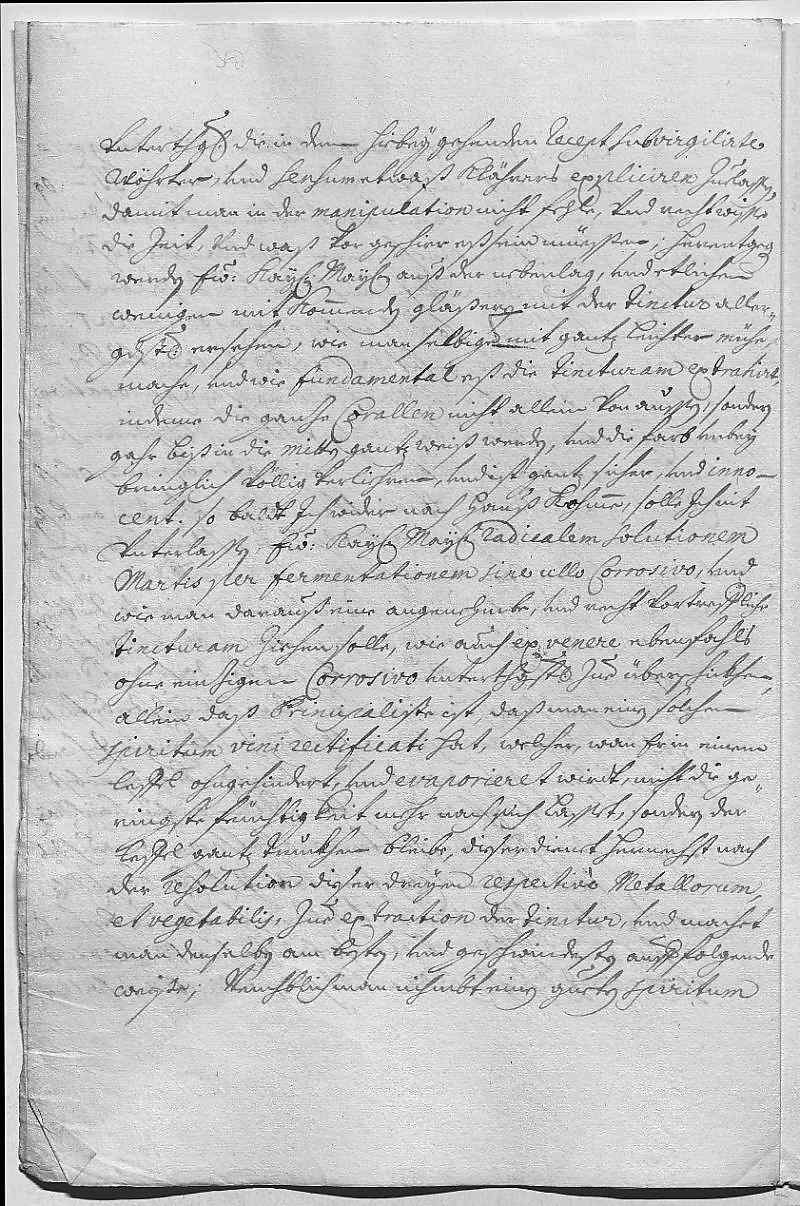 Unterthgst die in dem hiebey gehenden Recept subvirgilirte
Wöhrter, und sensum etwaß Klährers expliciren zu lassen,
damit man in der manipulation nicht fehle, und recht wisse
die Zeit, und waß vor geschier es sein müesse; herentgeg
werden Ew: Kayl: Mayl auß der nebenlag, und etlichen
wenigen mit kommenden gläßern mit der Tinctur aller„
gdst ersehen, wie man selbige mit gantz leichter mühe
mache, und wie fundamental eß die Tincturam extrahirt,
indeme die gantze Corallen nicht allein von aussen, sondern
gahr biß in die mitte gantz weiß werden, und die farb unbey
bringlich völlig verliehren, und ist gantz sicher, und inno„
cent. so baldt ich wider nach Hauß kohme, solle ich nit
Unterlassen, Ew: Kayl Mayl radicalem solutionem
Martis per fermentationem sine ullo Corrosivo, und
wie man darauß eine angenehmbe, und recht vortreffliche
Tincturam ziehen solle, wie auch ex venere ebenfahls
ohne einzigen Corrosivo unterthgst zue überschikhen,
allein daß Principaliste ist, daß man einen solchen
spiritum vini rectificati hat, welcher, wan Er in einem
leffel ohngehindert, und evaporieret wirdt, nicht die ge„
ringste feuchtigkeit mehr nach sich lasset, sondern der
leffel gantz trukhen bleibe, dieser dienet hernechst nach
der resolution dieser dreyen respective Metallorum,
et vegetabilis, zue extraction der Tinctur, und machet
man denselben am besten, und geschwindesten auff folgende
weyse; Nemblich man nihmbt einen guethen spiritum